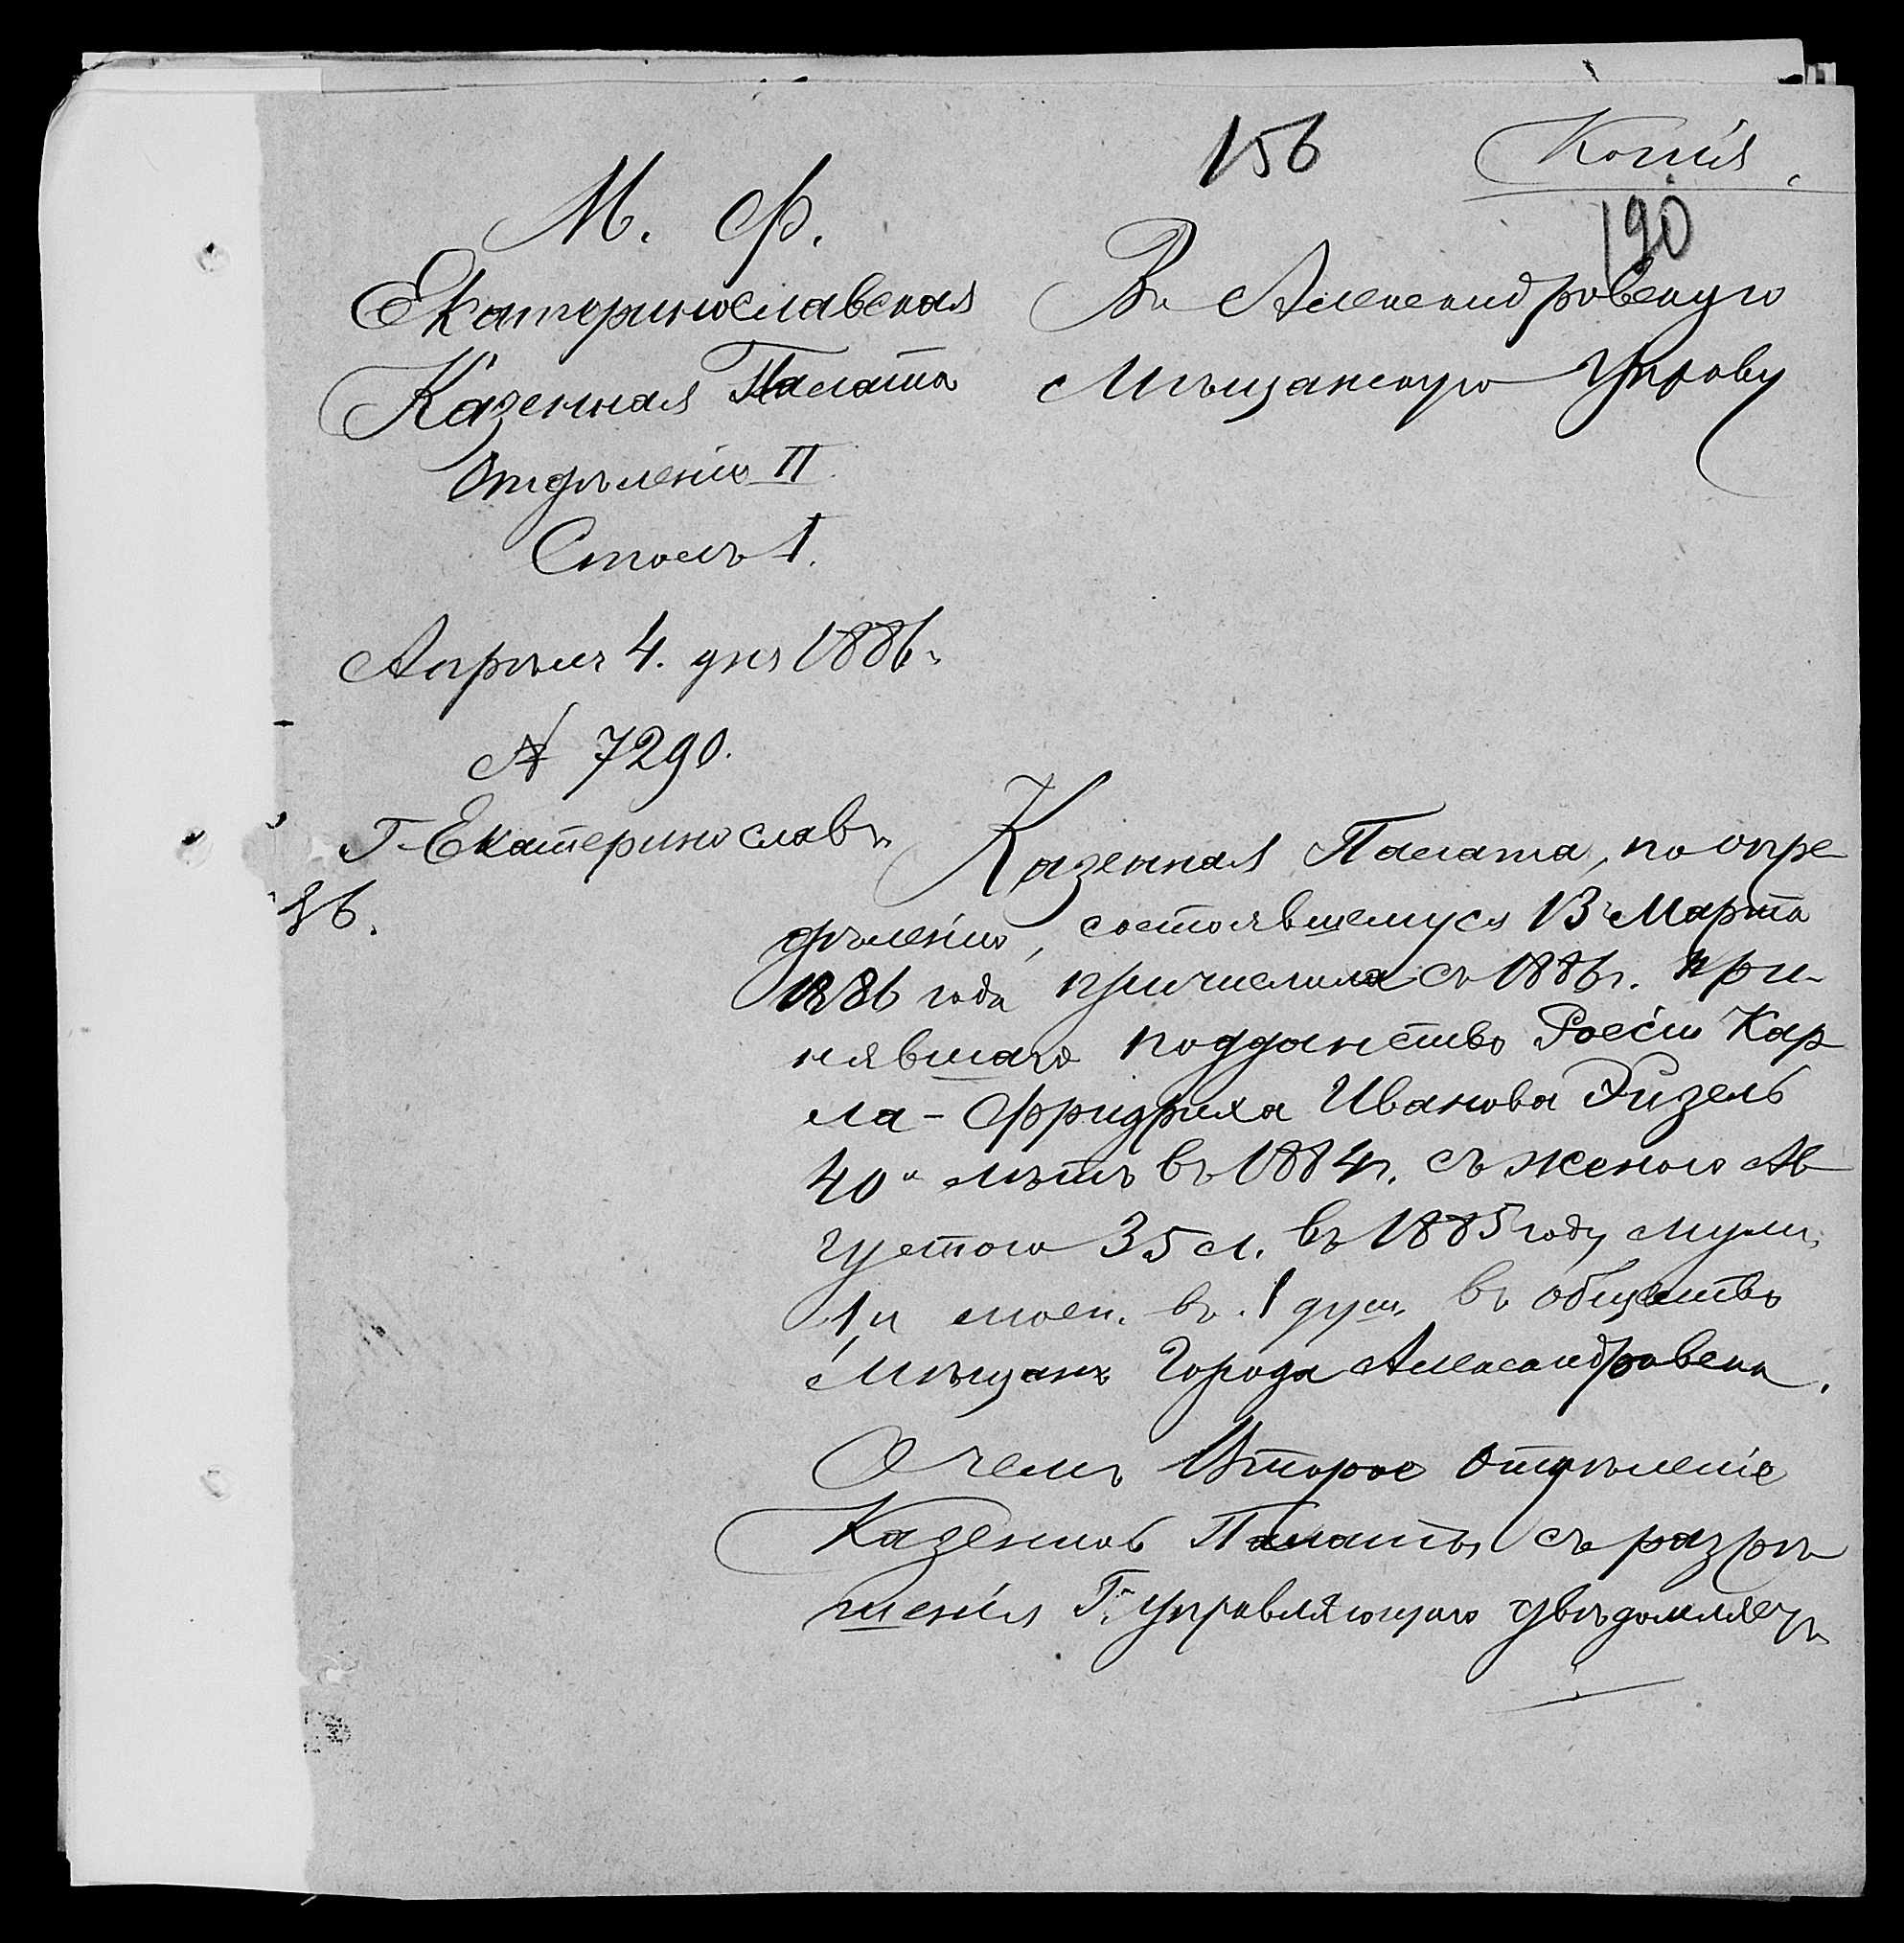 156
Копія
190
М. Ф.
Екатеринославская
Казенная Палата
Отдѣленіе II
Столъ 1.
Апрѣля 4. дня 1886 г.
№ 7290.
Г. Екатеринославъ
Въ Александровскую
Мѣщанскую Управу
Казенная Палата, по опре-
дѣленію, состоявшемуся 13 Марта
1886 года причислила съ 1886 г. при-
нявшаго подданство Россіи Кар-
ла-Фридриха Иванова Ризель
40 лѣтъ въ 1884 г. съ женою Ав-
густою 35 л. въ 1885 году муж.
1 и женск. въ 1 душ. въ общество
Мѣщанъ Города Александровска.
О чемъ Второе Отдѣленіе
Казенной Палаты, съ разрѣ-
шенія Г. Управляющаго увѣдомляетъ